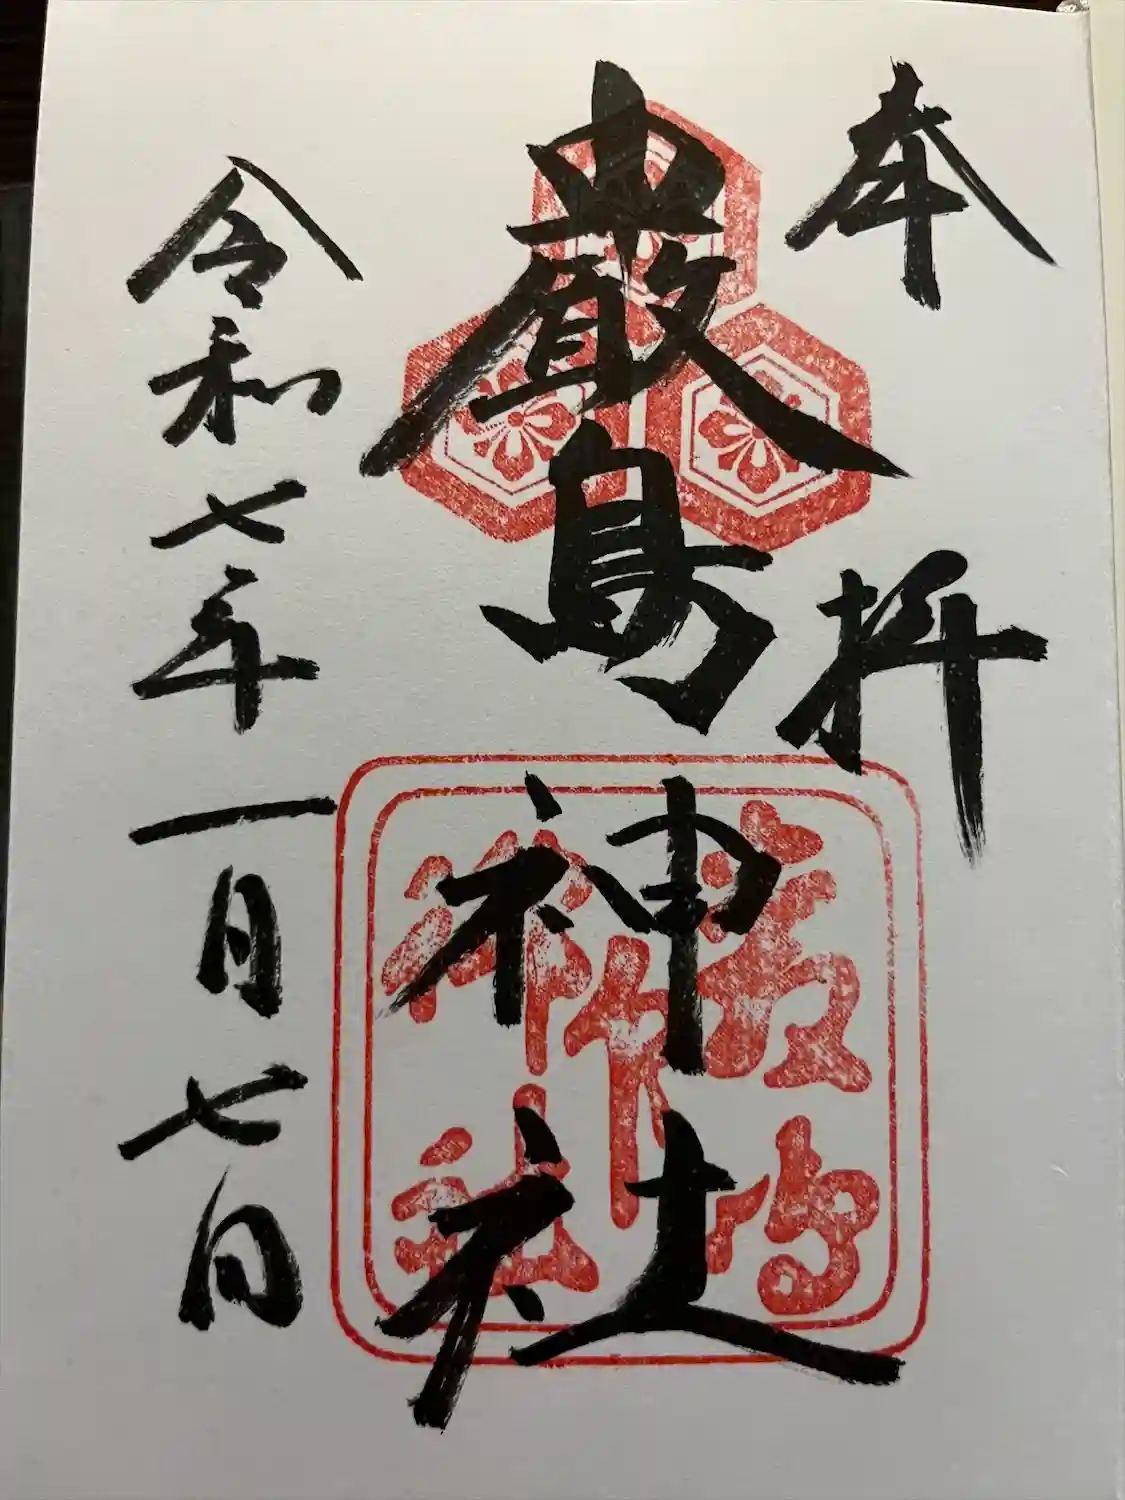 奉拝
厳島神社
令和七年一月七日
厳島
神社